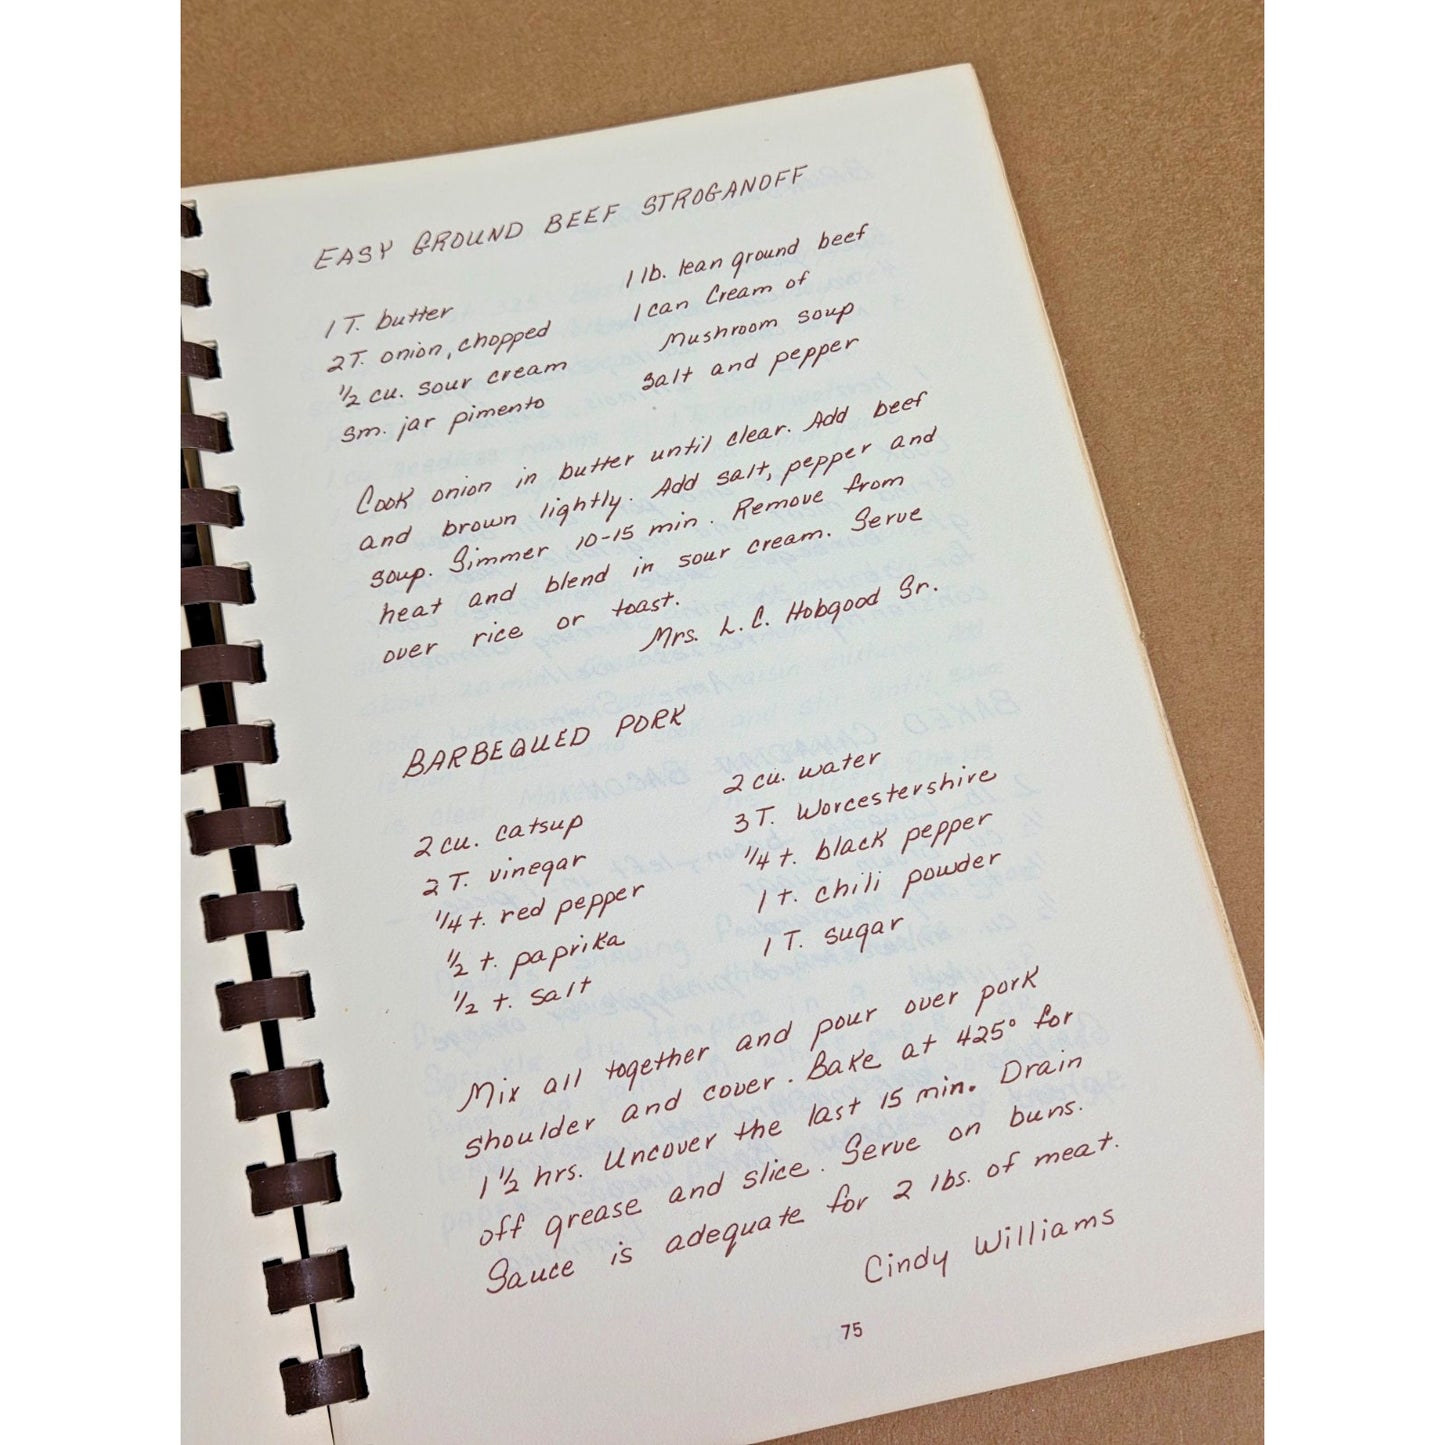 EASY GROUND BEEF STROGANOFF
1 T. butter
2 T. onion, chopped
1/2 cu. sour cream
sm. jar pimento
1 lb. lean ground beef
1 can Cream of
Mushroom soup
Salt and pepper
Cook onion in butter until clear. Add beef
and brown lightly. Add salt, pepper and
soup. Simmer 10-15 min. Remove from
heat and blend in sour cream. Serve
over rice or toast.
Mrs. L. C. Hobgood Sr.
BARBEQUED PORK
2 cu. catsup
2 T. vinegar
1/4 t. red pepper
1/2 t. paprika
1/2 t. salt
2 cu. water
3 T. Worcestershire
1/4 t. black pepper
1 t. chili powder
1 T. sugar
Mix all together and pour over pork
shoulder and cover. Bake at 425° for
1 1/2 hrs. Uncover the last 15 min. Drain
off grease and slice. Serve on buns.
Sauce is adequate for 2 lbs. of meat.
Cindy Williams
75